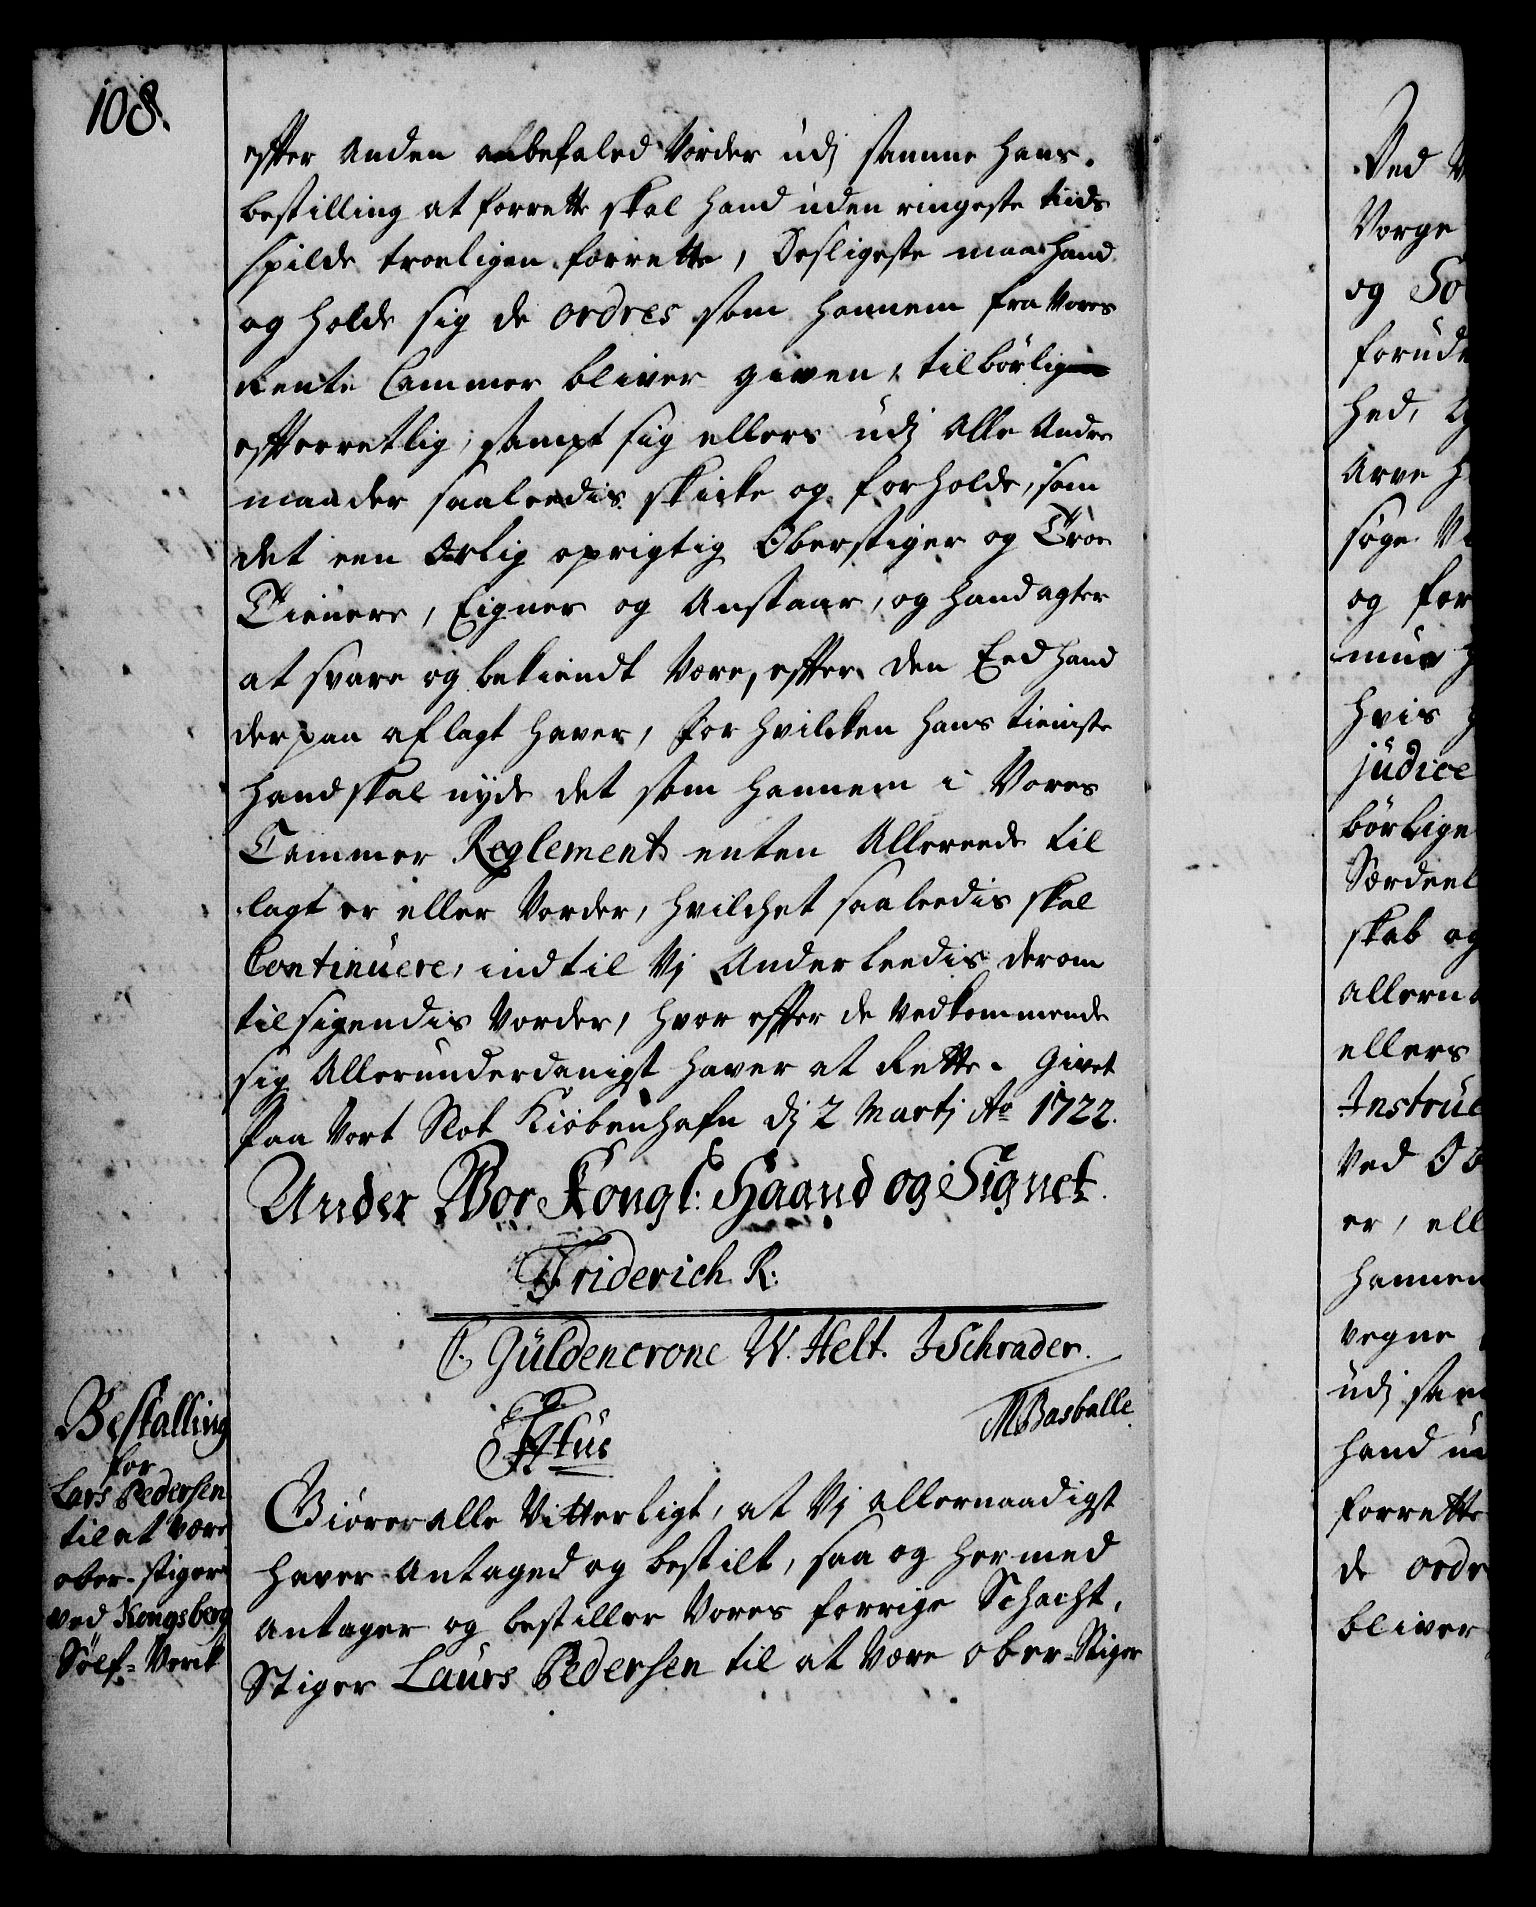 108.
effter Anden anbefaled Vorder udj samme hans
bestilling at forrette skal hand uden ringeste tiids
spilde troeligen forrette, Desligeste maae hand
og holde sig de ordres som hannem fra Vores
Rente Cammer bliver given, tilbørlig
effterretlig, sampt sig ellers udj Alle Andre
maader saaleedis skicke og forholde, som
det een Ærlig oprigtig Oberstiger og Troe
Tienere, Eigner og Anstaar, og hand agter
at svare og bekiendt Være, effter den Eed hand
derpaa aflagt haver, for hvilcken hans tieniste
hand skal nyde det som hannem i Vores
Cammer Reglement enten Allereede til
lagt er eller Vorder, hvilchet saaleedis skal
Continuere, indtil Vj Anderleedis derom
tilsigendis Vorder, hvor effter de Vedkommende
sig Allerunderdanigst haver at Rette. Givet
Paa Vort Slot Kiøbenhafn dj 2 Martj Ao 1722.
Under Vor Kongl: Haand og Signet.
Friderich R:
C. Güldencrone W. Helt. J Schrader.
M Basballe.
Bestalling
for
Lars Pedersen
til at være
ober-stiger
ved Kongsberg
Sølf-Verck
Giøre alle Vitterligt, at Vj allernaadigst
haver Antaged og bestilt, saa og hermed
Antager og bestiller Vores forrige Schacht,
Stiger Laurs Pedersen til at Være ober-Stiger
Ved
Vorge
og So
forude
hed,
Arve
søge
og for
mue
hvis
judice
børlige
Særdeel
skab og
allerna
ellers
Instruc
Ved Ob
er, ell
hannem
vegne
udj sam
hand
forrette
de ordr
bliver